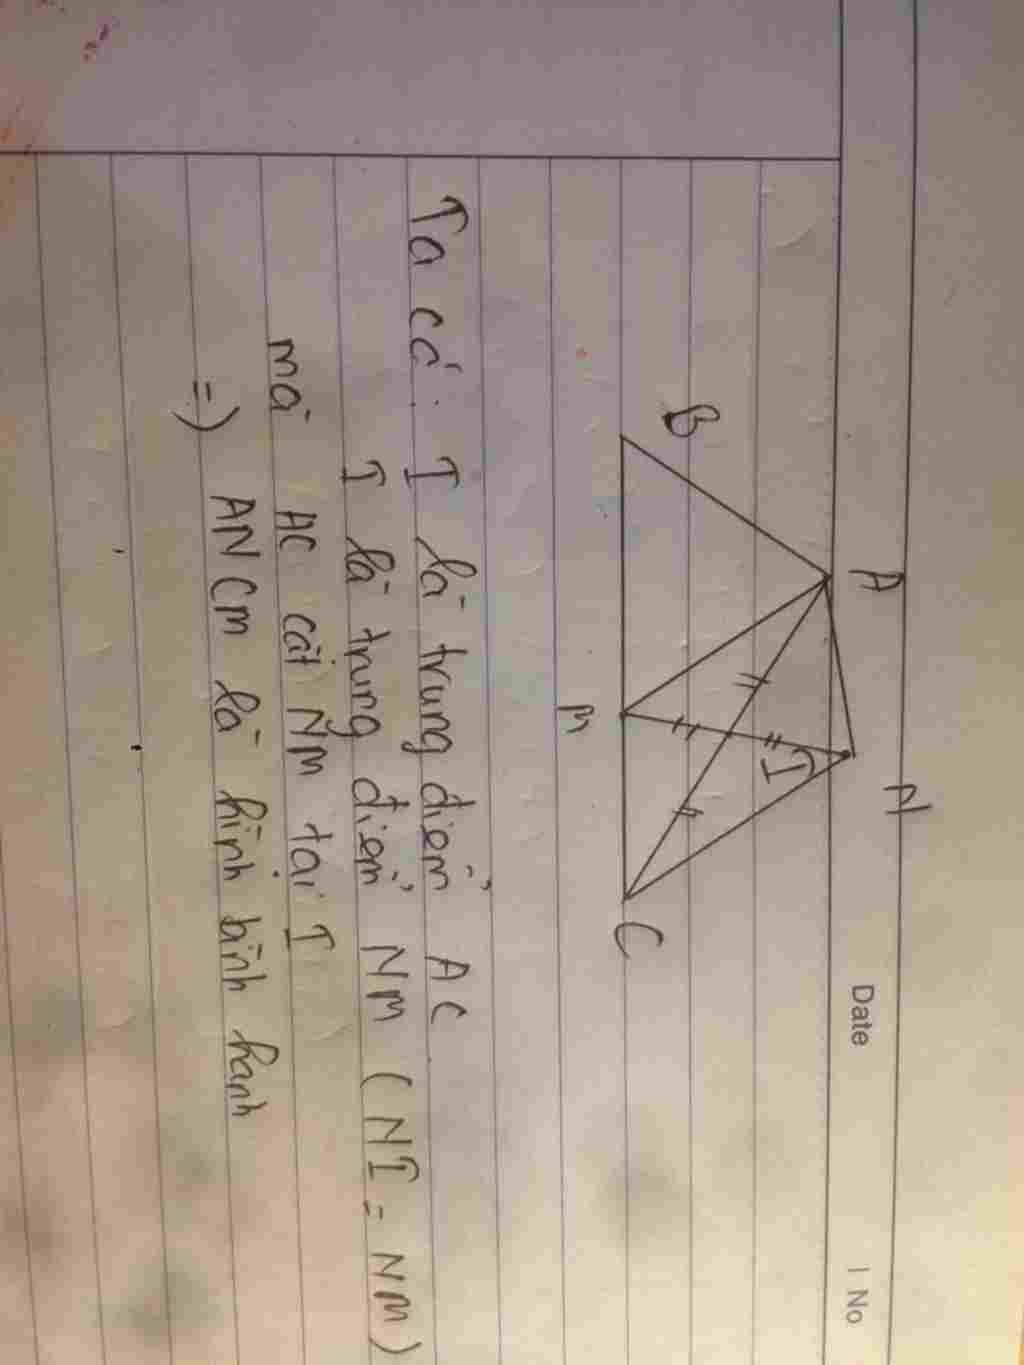 Date
No
A
N
B
I
M
C
Ta có: I là trung điểm AC
I là trung điểm NM (NI = NM)
mà AC cắt NM tại I
=) ANCM là hình bình hành